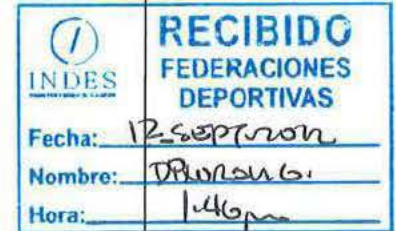 INDES
RECIBIDO
FEDERACIONES
DEPORTIVAS
Fecha: 12
Nombre:
Hora: 1:46pm